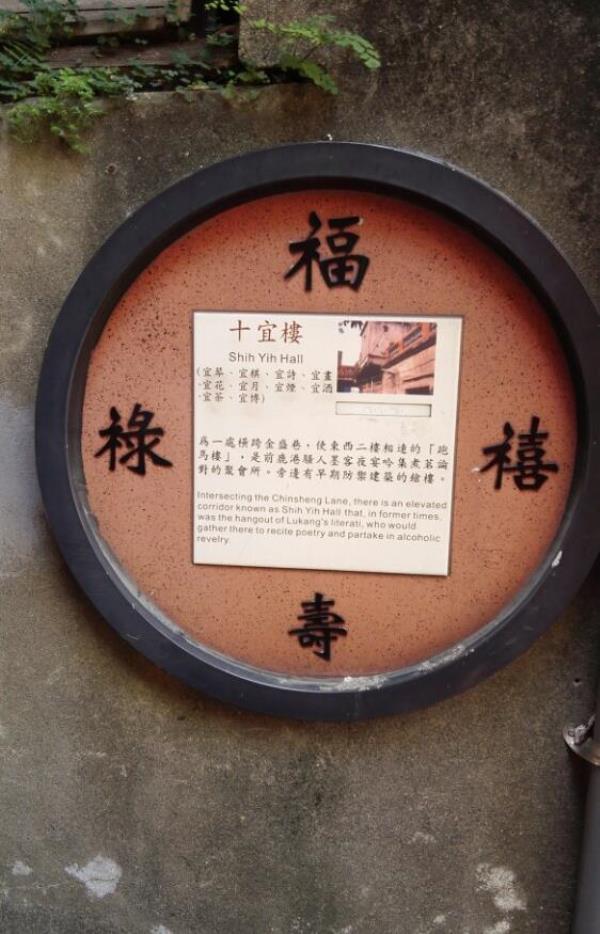 福
十宜樓
Shih Yih Hall
(宜琴、宜棋、宜詩、宜畫
、宜花、宜月、宜煙、宜酒
、宜茶、宜博)
祿
禧
為一處橫跨金盛巷，使東西二樓相連的「跑
馬樓」，是前鹿港騷人墨客夜宴吟集煮茗論
對的聚會所。旁邊有早期防禦建築的銃樓。
Intersecting the Chinsheng Lane, there is an elevated
corridor known as Shih Yih Hall that, in former times,
was the hangout of Lukang's literati, who would
gather there to recite poetry and partake in alcoholic
revelry.
壽